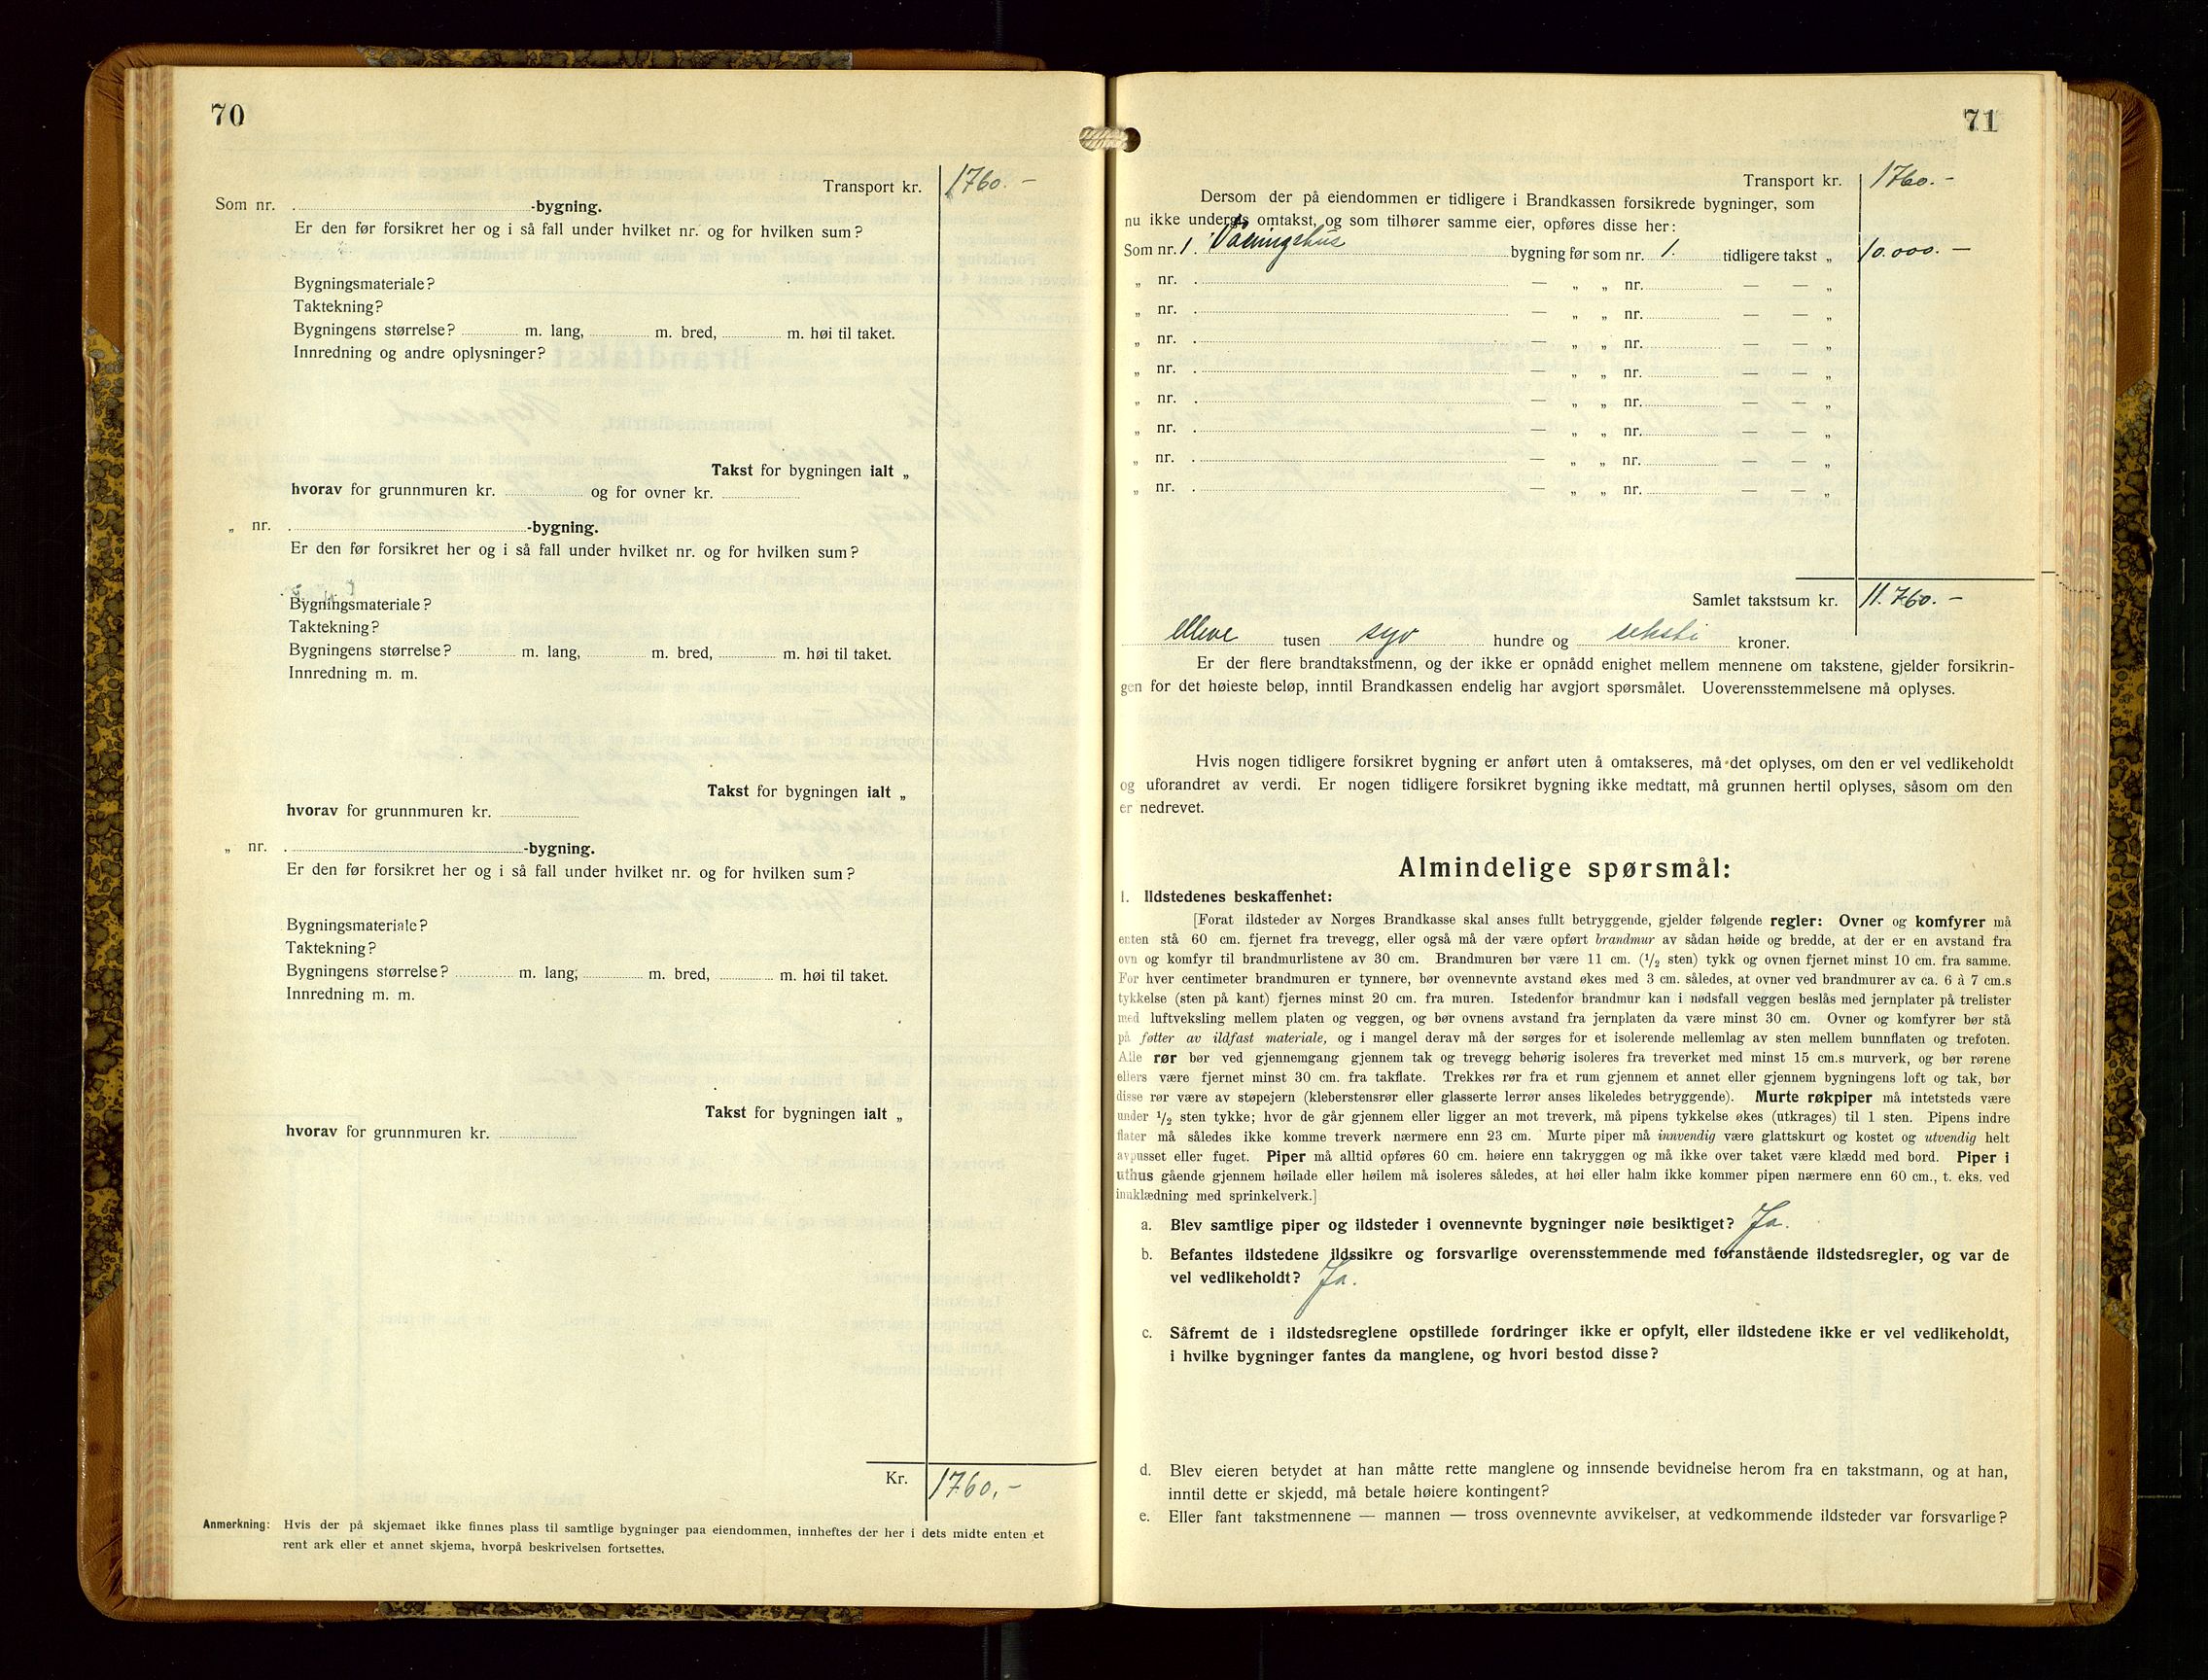 70
Transport kr. 1760.-
Som nr. -bygning.
Er den før forsikret her og i så fall under hvilket nr. og for hvilken sum?
Bygningsmateriale?
Taktekning?
Bygningens størrelse? m. lang, m. bred, m. høi til taket.
Innredning og andre oplysninger?
Takst for bygningen ialt „
hvorav for grunnmuren kr. og for ovner kr.
„ nr. -bygning.
Er den før forsikret her og i så fall under hvilket nr. og for hvilken sum?
Bygningsmateriale?
Taktekning?
Bygningens størrelse? m. lang, m. bred, m. høi til taket.
Innredning m. m.
Takst for bygningen ialt „
hvorav for grunnmuren kr.
„ nr. -bygning.
Er den før forsikret her og i så fall under hvilket nr. og for hvilken sum?
Bygningsmateriale?
Taktekning?
Bygningens størrelse? m. lang, m. bred, m. høi til taket.
Innredning m. m.
Takst for bygningen ialt „
hvorav for grunnmuren kr.
Kr. 1760,-
Anmerkning: Hvis der på skjemaet ikke finnes plass til samtlige bygninger paa eiendommen, innheftes der her i dets midte enten et
rent ark eller et annet skjema, hvorpå beskrivelsen fortsettes.
71
Transport kr. 1760.-
Dersom der på eiendommen er tidligere i Brandkassen forsikrede bygninger, som
nu ikke undergis omtakst, og som tilhører samme eier, opføres disse her:
Som nr. 1. Våningshus bygning før som nr. 1. tidligere takst „ 10.000.-
„ nr. — „ „ nr. — — „
„ nr. — „ „ nr. — — „
„ nr. — „ „ nr. — — „
„ nr. — „ „ nr. — — „
„ nr. — „ „ nr. — — „
„ nr. — „ „ nr. — — „
„ nr. — „ „ nr. — — „
„ nr. — „ „ nr. — — „
Samlet takstsum kr. 11.760.-
elleve tusen syv hundre og seksti kroner.
Er der flere brandtakstmenn, og der ikke er opnådd enighet mellem mennene om takstene, gjelder forsikrin-
gen for det høieste beløp, inntil Brandkassen endelig har avgjort spørsmålet. Uoverensstemmelsene må oplyses.
Hvis nogen tidligere forsikret bygning er anført uten å omtakseres, må det oplyses, om den er vel vedlikeholdt
og uforandret av verdi. Er nogen tidligere forsikret bygning ikke medtatt, må grunnen hertil oplyses, såsom om den
er nedrevet.
Almindelige spørsmål:
1. Ildstedenes beskaffenhet:
[Forat ildsteder av Norges Brandkasse skal anses fullt betryggende, gjelder følgende regler: Ovner og komfyrer må
enten stå 60 cm. fjernet fra trevegg, eller også må der være opført brandmur av sådan høide og bredde, at der er en avstand fra
ovn og komfyr til brandmurlistene av 30 cm. Brandmuren bør være 11 cm. (1/2 sten) tykk og ovnen fjernet minst 10 cm. fra samme.
For hver centimeter brandmuren er tynnere, bør ovennevnte avstand økes med 3 cm. således, at ovner ved brandmurer av ca. 6 à 7 cm.s
tykkelse (sten på kant) fjernes minst 20 cm. fra muren. Istedenfor brandmur kan i nødsfall veggen beslås med jernplater på trelister
med luftveksling mellem platen og veggen, og bør ovnens avstand fra jernplaten da være minst 30 cm. Ovner og komfyrer bør stå
på føtter av ildfast materiale, og i mangel derav må der sørges for et isolerende mellemlag av sten mellem bunnflaten og trefoten.
Alle rør bør ved gjennemgang gjennem tak og trevegg behørig isoleres fra treverket med minst 15 cm.s murverk, og bør rørene
ellers være fjernet minst 30 cm. fra takflate. Trekkes rør fra et rum gjennem et annet eller gjennem bygningens loft og tak, bør
disse rør være av støpejern (kleberstensrør eller glasserte lerrør anses likeledes betryggende). Murte røkpiper må intetsteds være
under 1/2 sten tykke; hvor de går gjennem eller ligger an mot treverk, må pipens tykkelse økes (utkrages) til 1 sten. Pipens indre
flater må således ikke komme treverk nærmere enn 23 cm. Murte piper må innvendig være glattskurt og kostet og utvendig helt
avpusset eller fuget. Piper må alltid opføres 60 cm. høiere enn takryggen og må ikke over taket være klædd med bord. Piper i
uthus gående gjennem høilade eller høilem må isoleres således, at høi eller halm ikke kommer pipen nærmere enn 60 cm., t. eks. ved
innklædning med sprinkelverk.]
a. Blev samtlige piper og ildsteder i ovennevnte bygninger nøie besiktiget? Ja.
b. Befantes ildstedene ildssikre og forsvarlige overensstemmende med foranstående ildstedsregler, og var de
vel vedlikeholdt? Ja.
c. Såfremt de i ildstedsreglene opstillede fordringer ikke er opfylt, eller ildstedene ikke er vel vedlikeholdt,
i hvilke bygninger fantes da manglene, og hvori bestod disse?
d. Blev eieren betydet at han måtte rette manglene og innsende bevidnelse herom fra en takstmann, og at han,
inntil dette er skjedd, må betale høiere kontingent?
e. Eller fant takstmennene — mannen — tross ovennevnte avvikelser, at vedkommende ildsteder var forsvarlige?